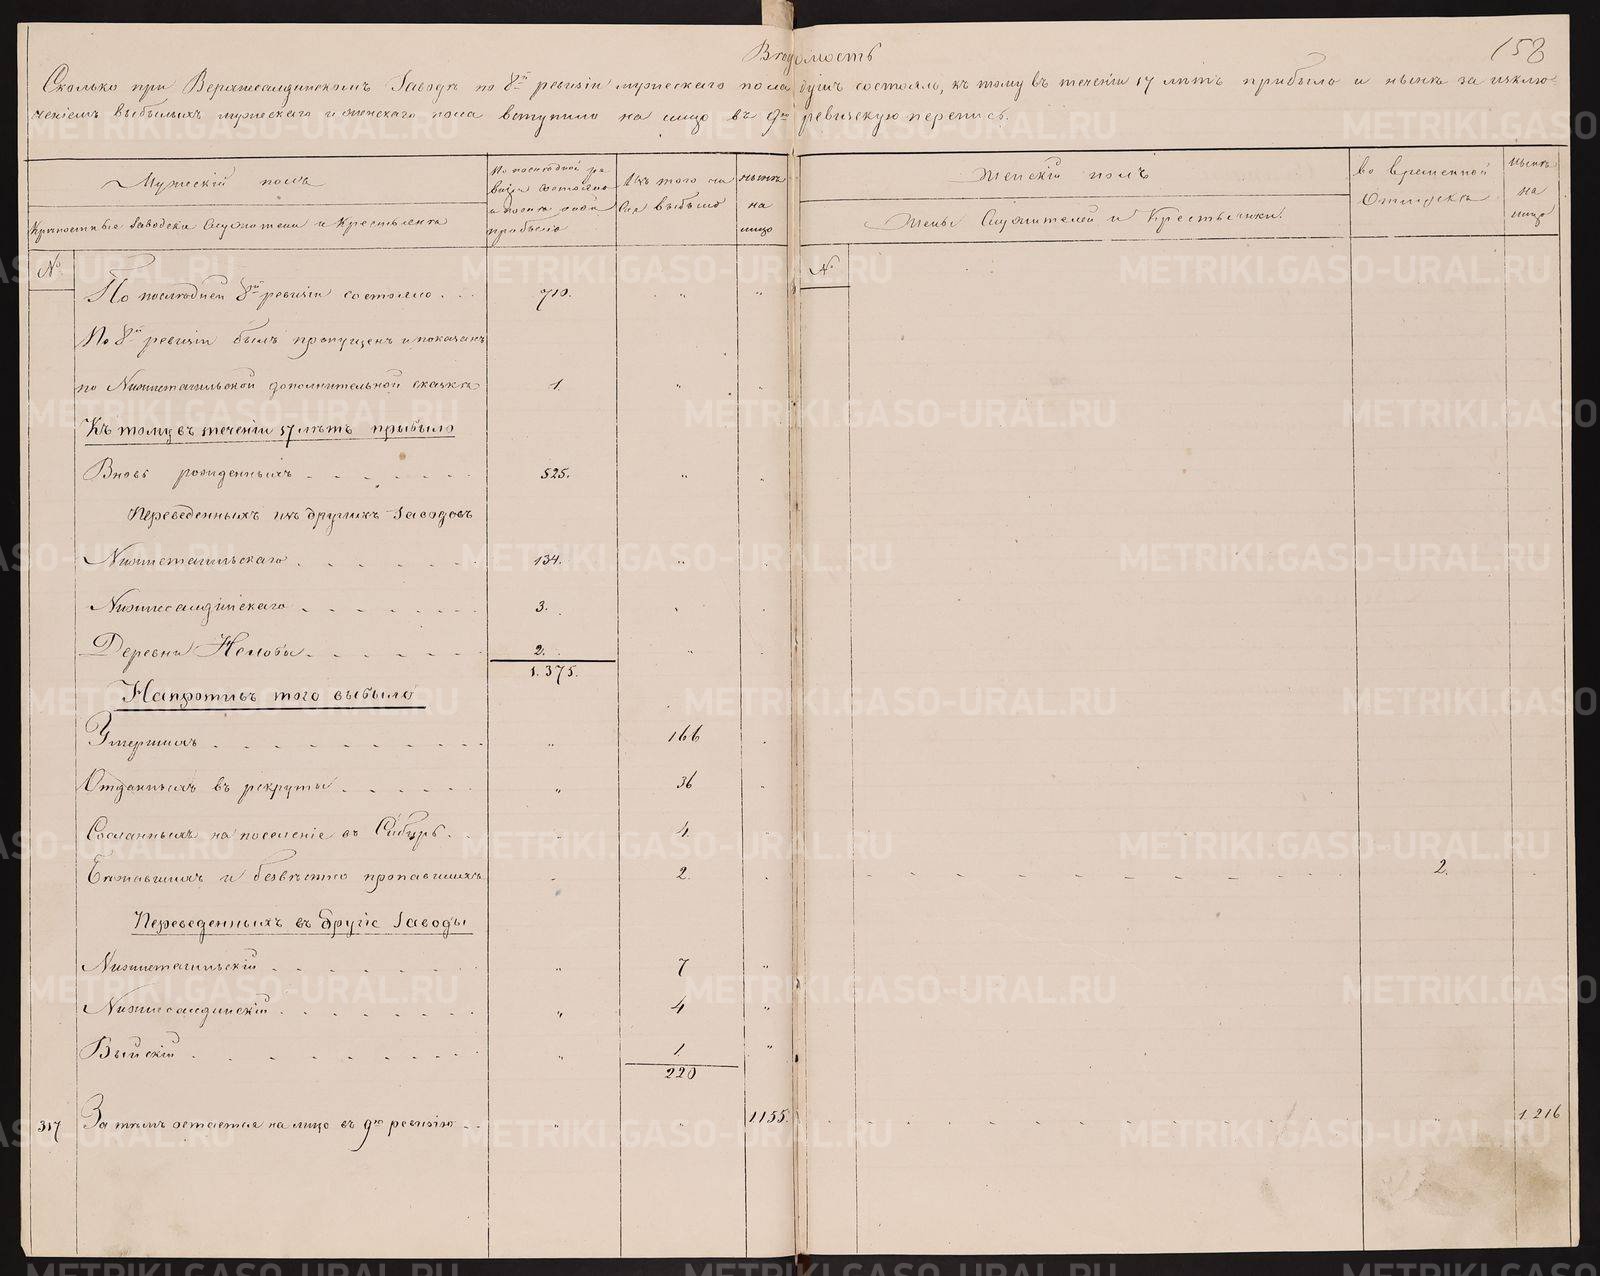 158
Ведомость
Сколько при Верхнесалдинскомъ Заводе по 8й ревизіи мужескаго пола душъ состояло, къ тому въ теченіи 17 летъ прибыло и ныне за исклю-
ченіемъ выбылыхъ мужескаго и женскаго пола вступило на лицо въ 9ю ревизскую перепись.
Мужескій полъ
Крепостные Заводскіе Служители и Крестьяне
По последней ре
визіи состояло
и после оной
прибыло
Изъ того чи
сла выбыло
ныне
на
лицо
Женскій полъ
Жены Служителей и Крестьянки.
во временной
отлучке
ныне
на
лицо
№
№
По последней 8й ревизіи состояло . . . 710. " "
По 8й ревизіи былъ пропущенъ и показанъ
по Нижнетагильской дополнительной сказке 1. " "
Къ тому въ теченіи 17 летъ прибыло
Вновь рожденныхъ . . . . . . 525. " "
Переведенныхъ изъ другихъ Заводовъ
Нижнетагильскаго . . . . . 134. "
Нижнесалдинскаго . . . . . 3. "
Деревни Нелобы . . . . . . 2. "
1.375.
Напротивъ того выбыло
Умершихъ . . . . . . . . . " 166
Отданныхъ въ рекруты . . . . . " 36
Сосланныхъ на поселеніе въ Сибирь . . " 4
Бежавшихъ и безвестно пропавшихъ " 2. 2.
Переведенныхъ въ другіе Заводы
Нижнетагильскій . . . . . . " 7 "
Нижнесалдинскій . . . . . . " 4 "
Выйскій . . . . . . . . " 1 "
220
317 За темъ остается на лицо въ 9ю ревизію . . " " 1155. 1.216
METRIKI.GASO-URAL.RU